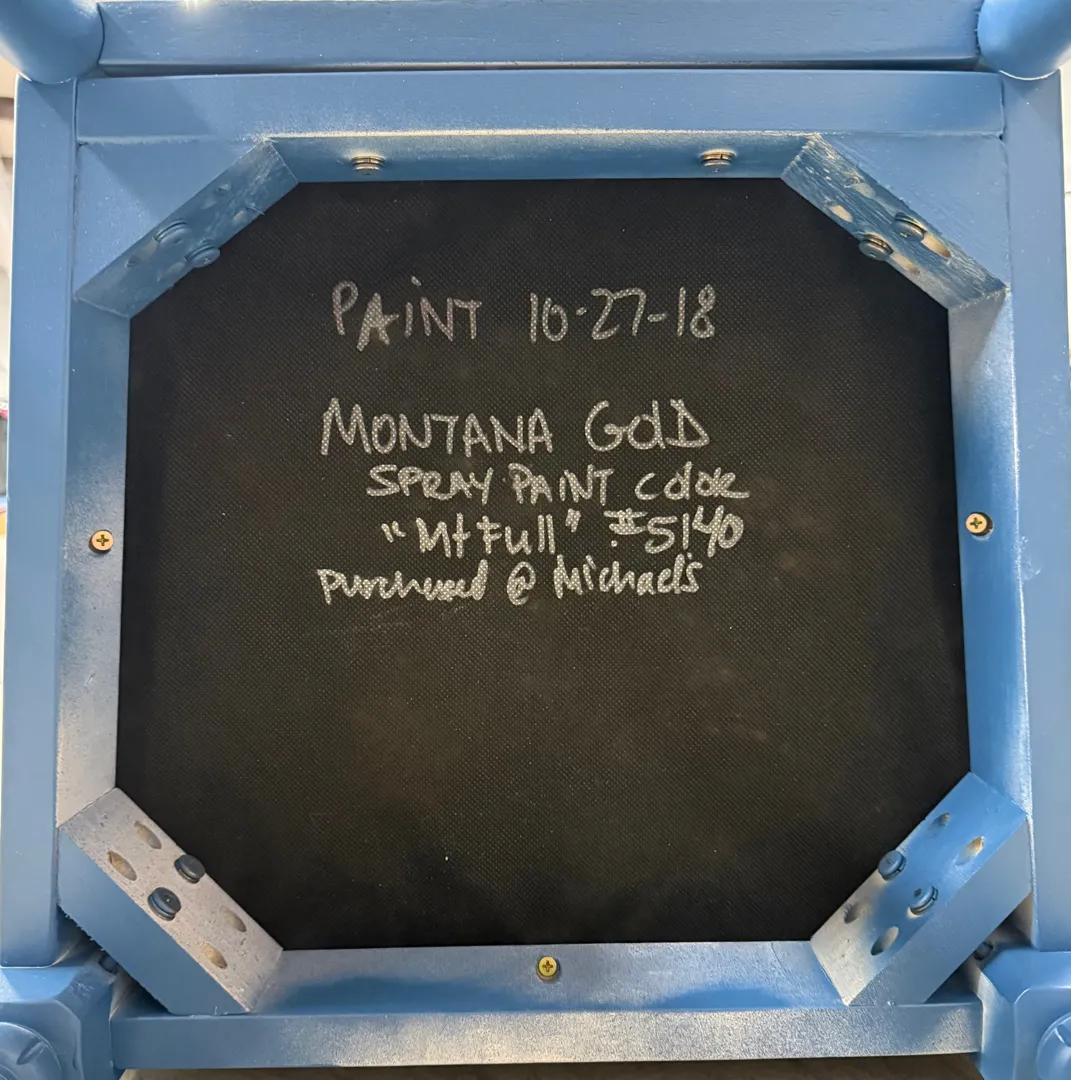 PAiNT 10-27-18
MONTANA GOLD
SPRAY PAINT COLOR
"Mt Fuji" #5140
Purchased @ Michael's